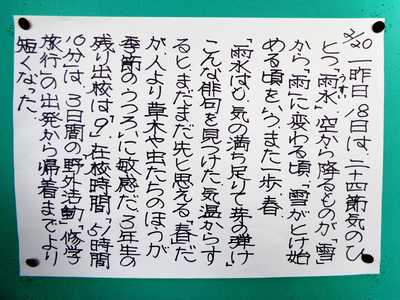 2/20
一昨日、18日は、二十四節気のひ
とつ「雨水」(うすい)空から降るものが、「雪」
から、「雨」に変わる頃、「雪」がとけ始
める頃をいう。また一歩、春。
「雨水はむ、気の満ち足りて芽の弾け」
こんな俳句を見つけた。気温からす
ると、まだまだ先と思える「春」だ
が、人より草木や虫たちのほうが
季節のうつろいに敏感だ。3年生の
残り出校は「9」、在校時間「51時間
10分」は、3日間の「野外活動」「修学
旅行」の出発から帰着までより
短くなった。